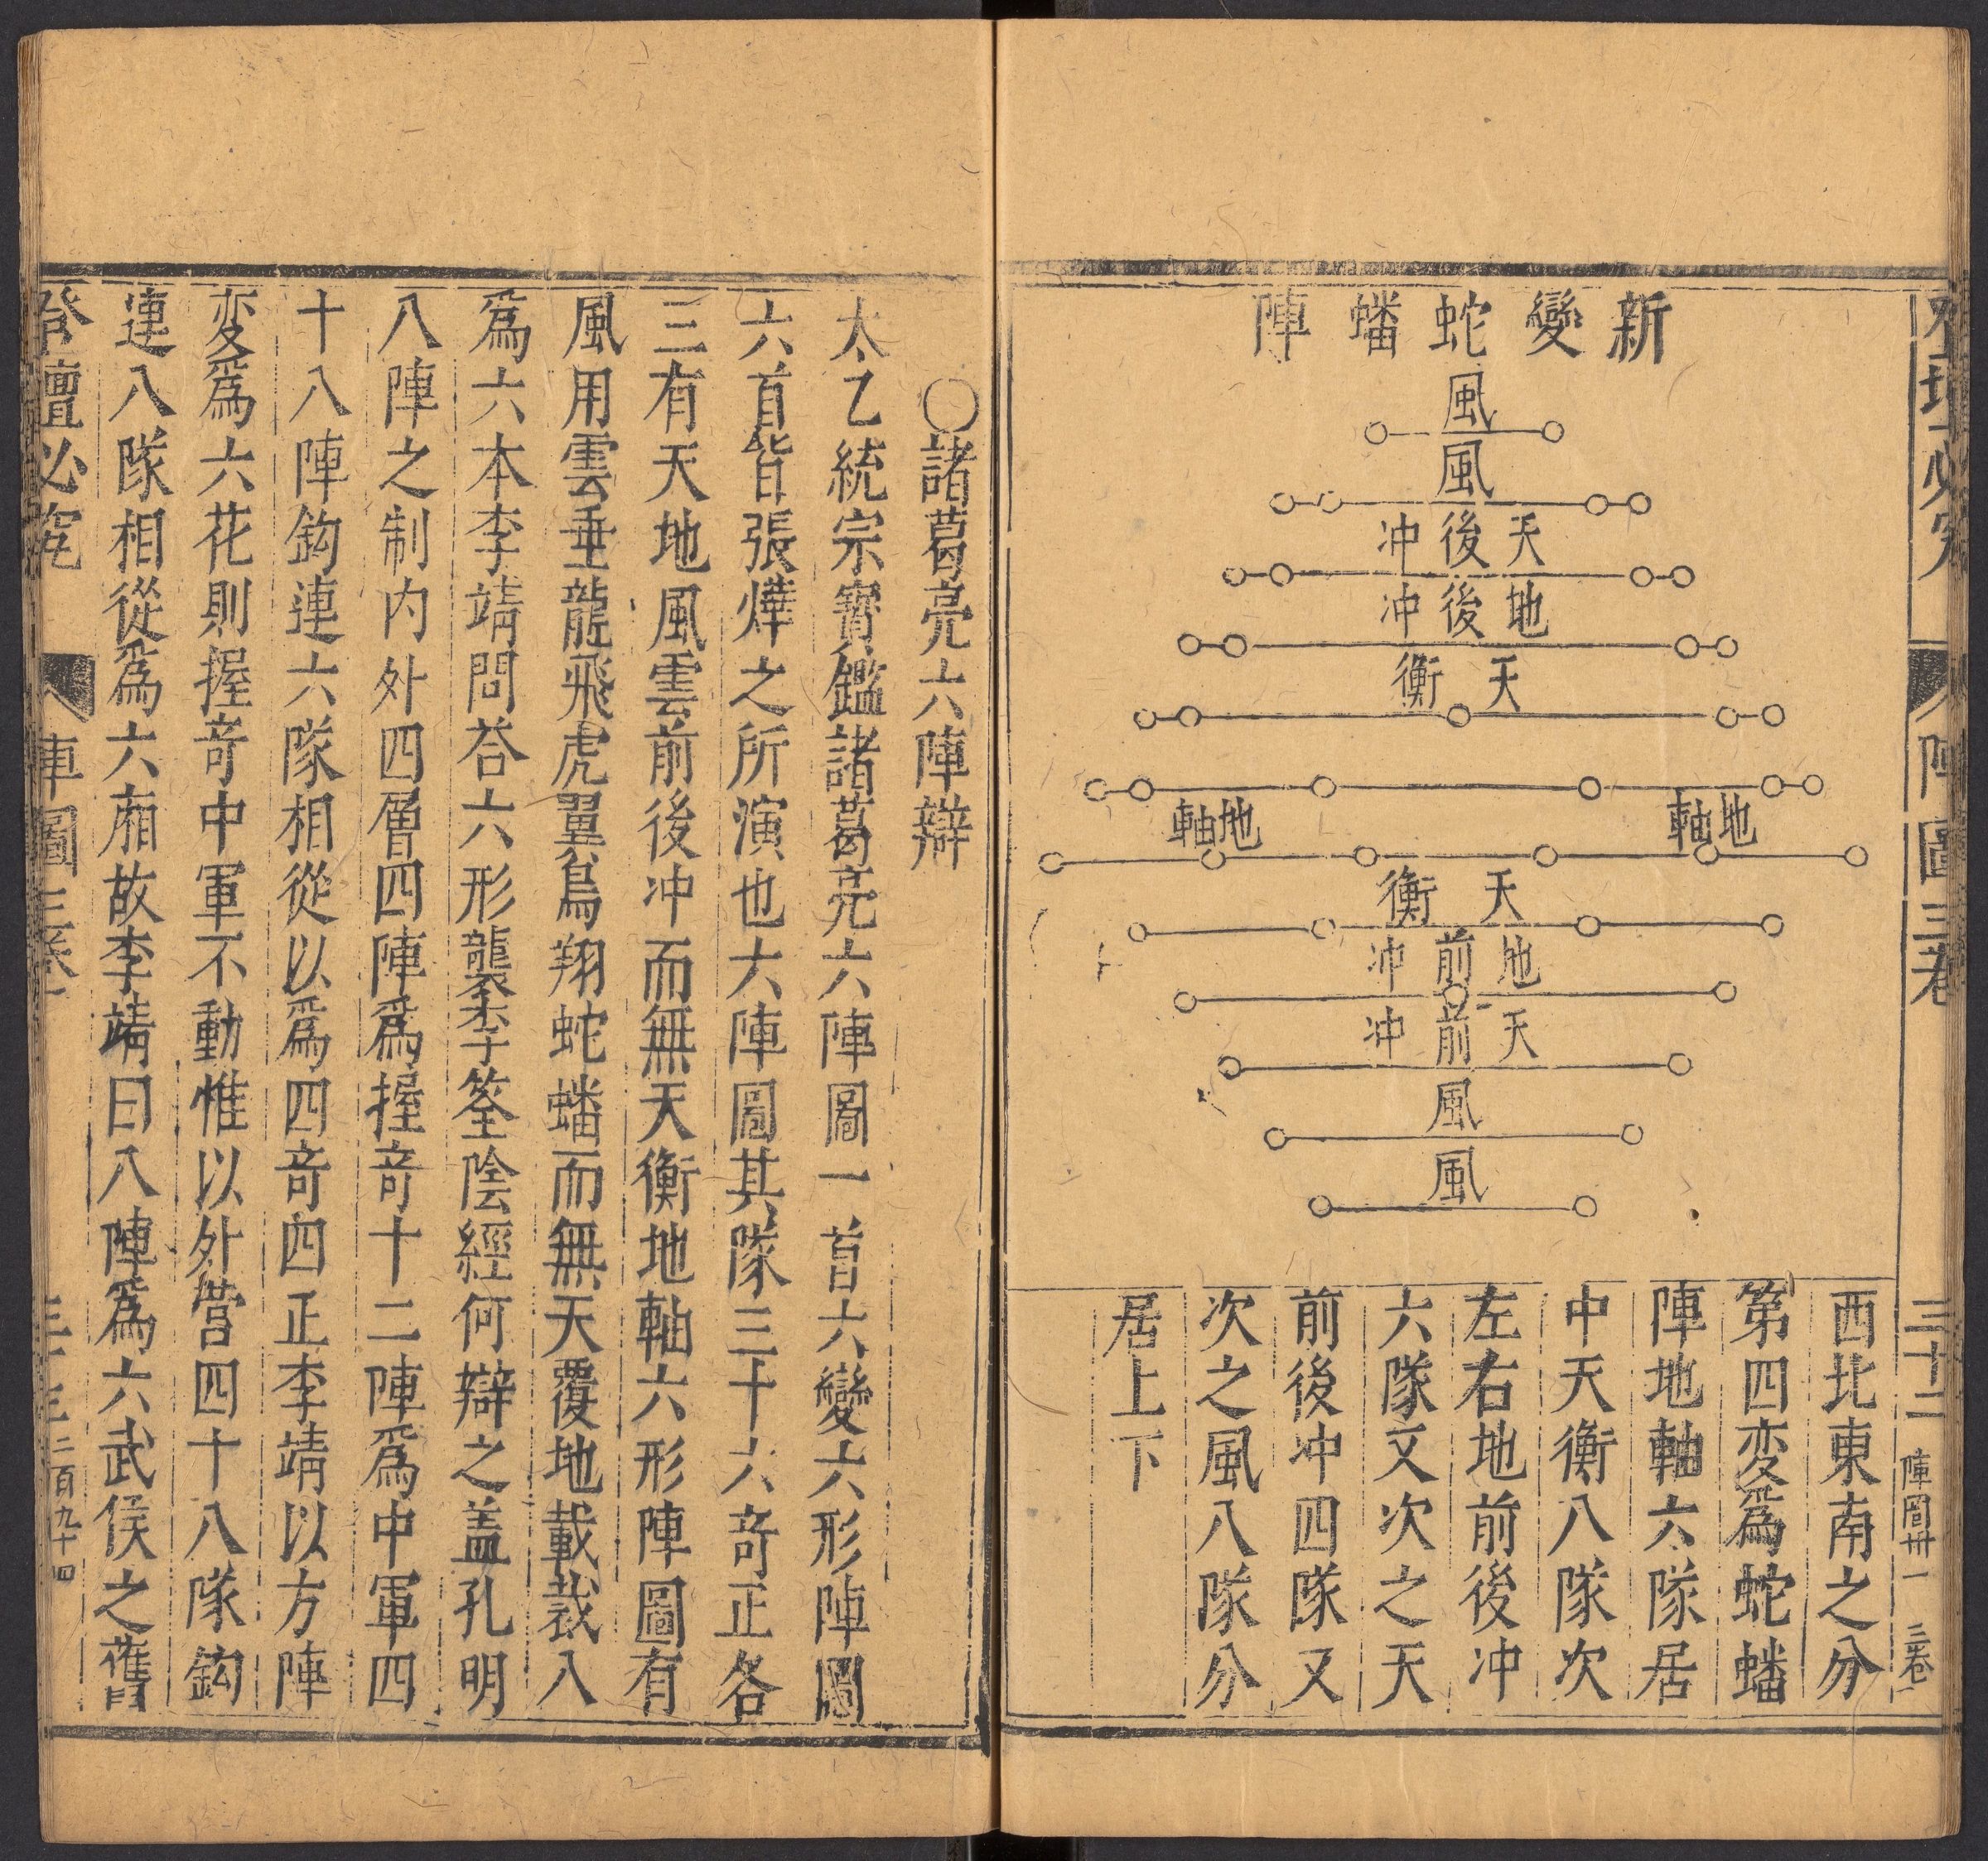 登壇必究
陣圖三卷
三十二
陣圖卅一
三卷
新變蛇蟠陣
風
風
天後冲
地後冲
天衡
地軸
地軸
天衡
地前冲
天前冲
風
風
西北東南之分
第四变爲蛇蟠
陣地軸六隊居
中天衡八隊次
左右地前後冲
六隊又次之天
前後冲四隊又
次之風八隊分
居上下
○諸葛亮六陣辯
太乙統宗寳鑑諸葛亮六陣圖一首六變六形陣圖
六首皆張燁之所演也大陣圖其隊三十六竒正各
三有天地風雲前後冲而無天衡地軸六形陣圖有
風用雲垂龍飛虎翼鳥翔蛇蟠而無天覆地載裁八
爲六本李靖問荅六形襲李筌陰經何辯之盖孔明
八陣之制内外四層四陣爲握竒十二陣爲中軍四
十八陣鈎連六隊相從以爲四竒四正李靖以方陣
变爲六花則握竒中軍不動惟以外營四十八隊鈎
連八隊相從爲六廂故李靖曰八陣爲六武侯之舊
登壇必究
陣圖三卷
三十三
二百九十四